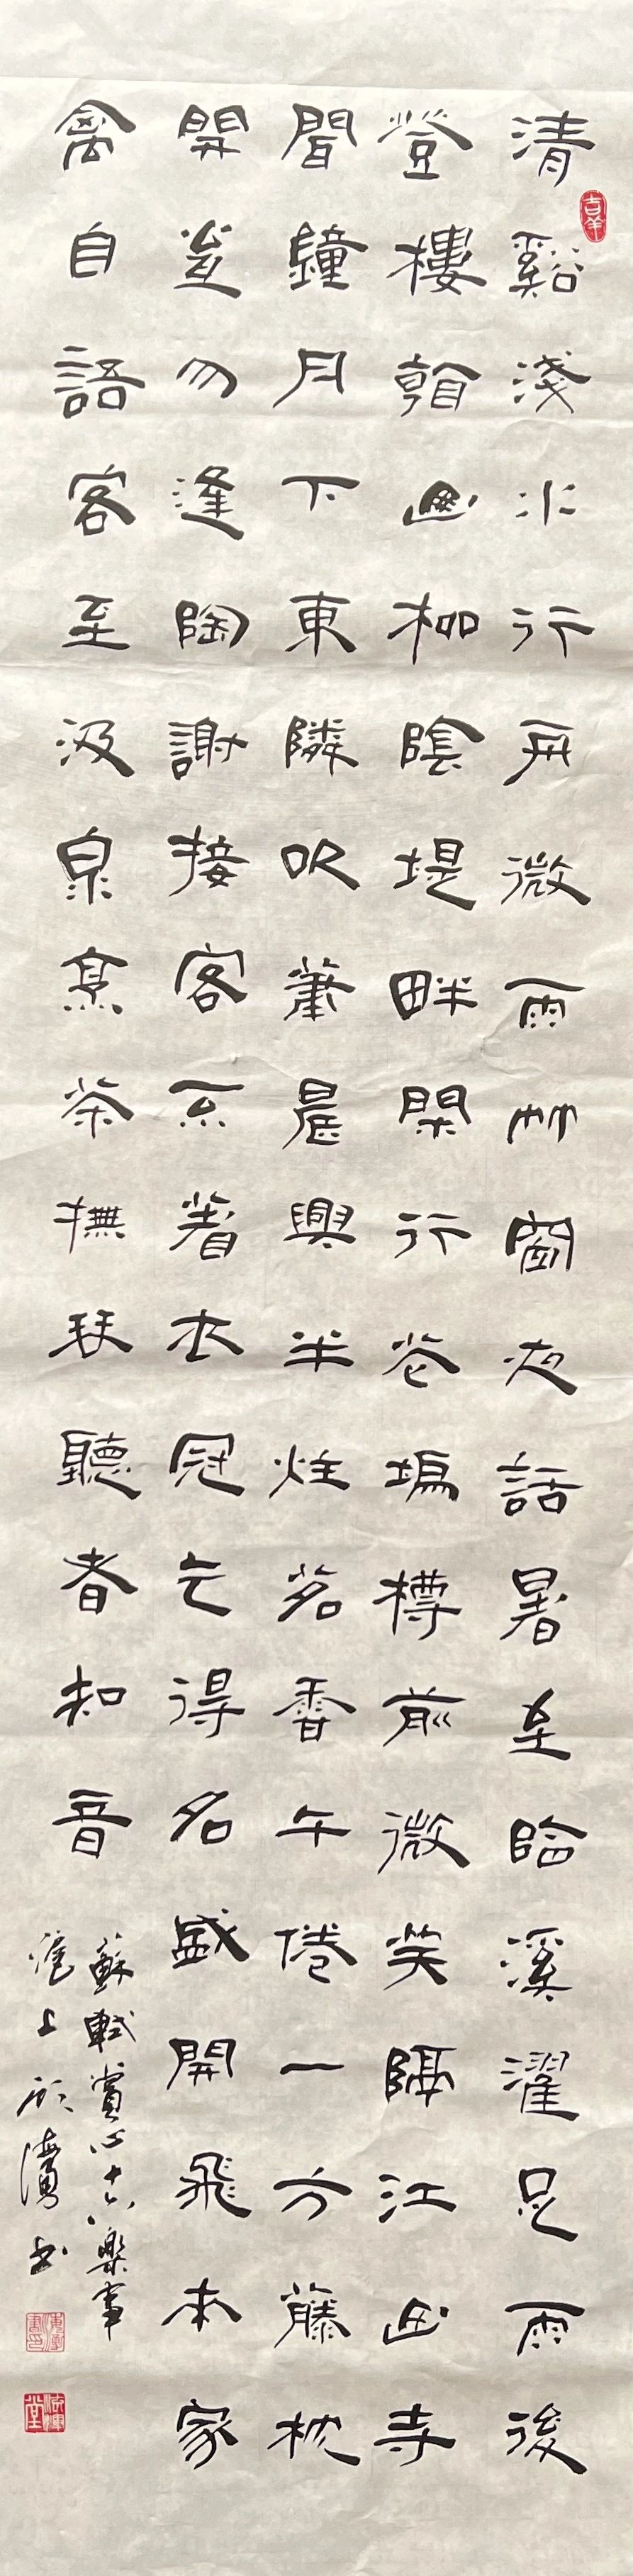 清谿淺水行舟微雨竹窗夜話暑至臨溪濯足雨後
登樓看山柳陰堤畔閑行花塢樽前微笑隔江山寺
聞鐘月下東隣吹簫晨興半炷茗香午倦一方藤枕
開瓮勿逢陶謝接客不著衣冠乞得名盛開飛本家
禽自語客至汲泉烹茶撫琴聽者知音
蘇軾賞心十六樂事
滬上書
吉羊